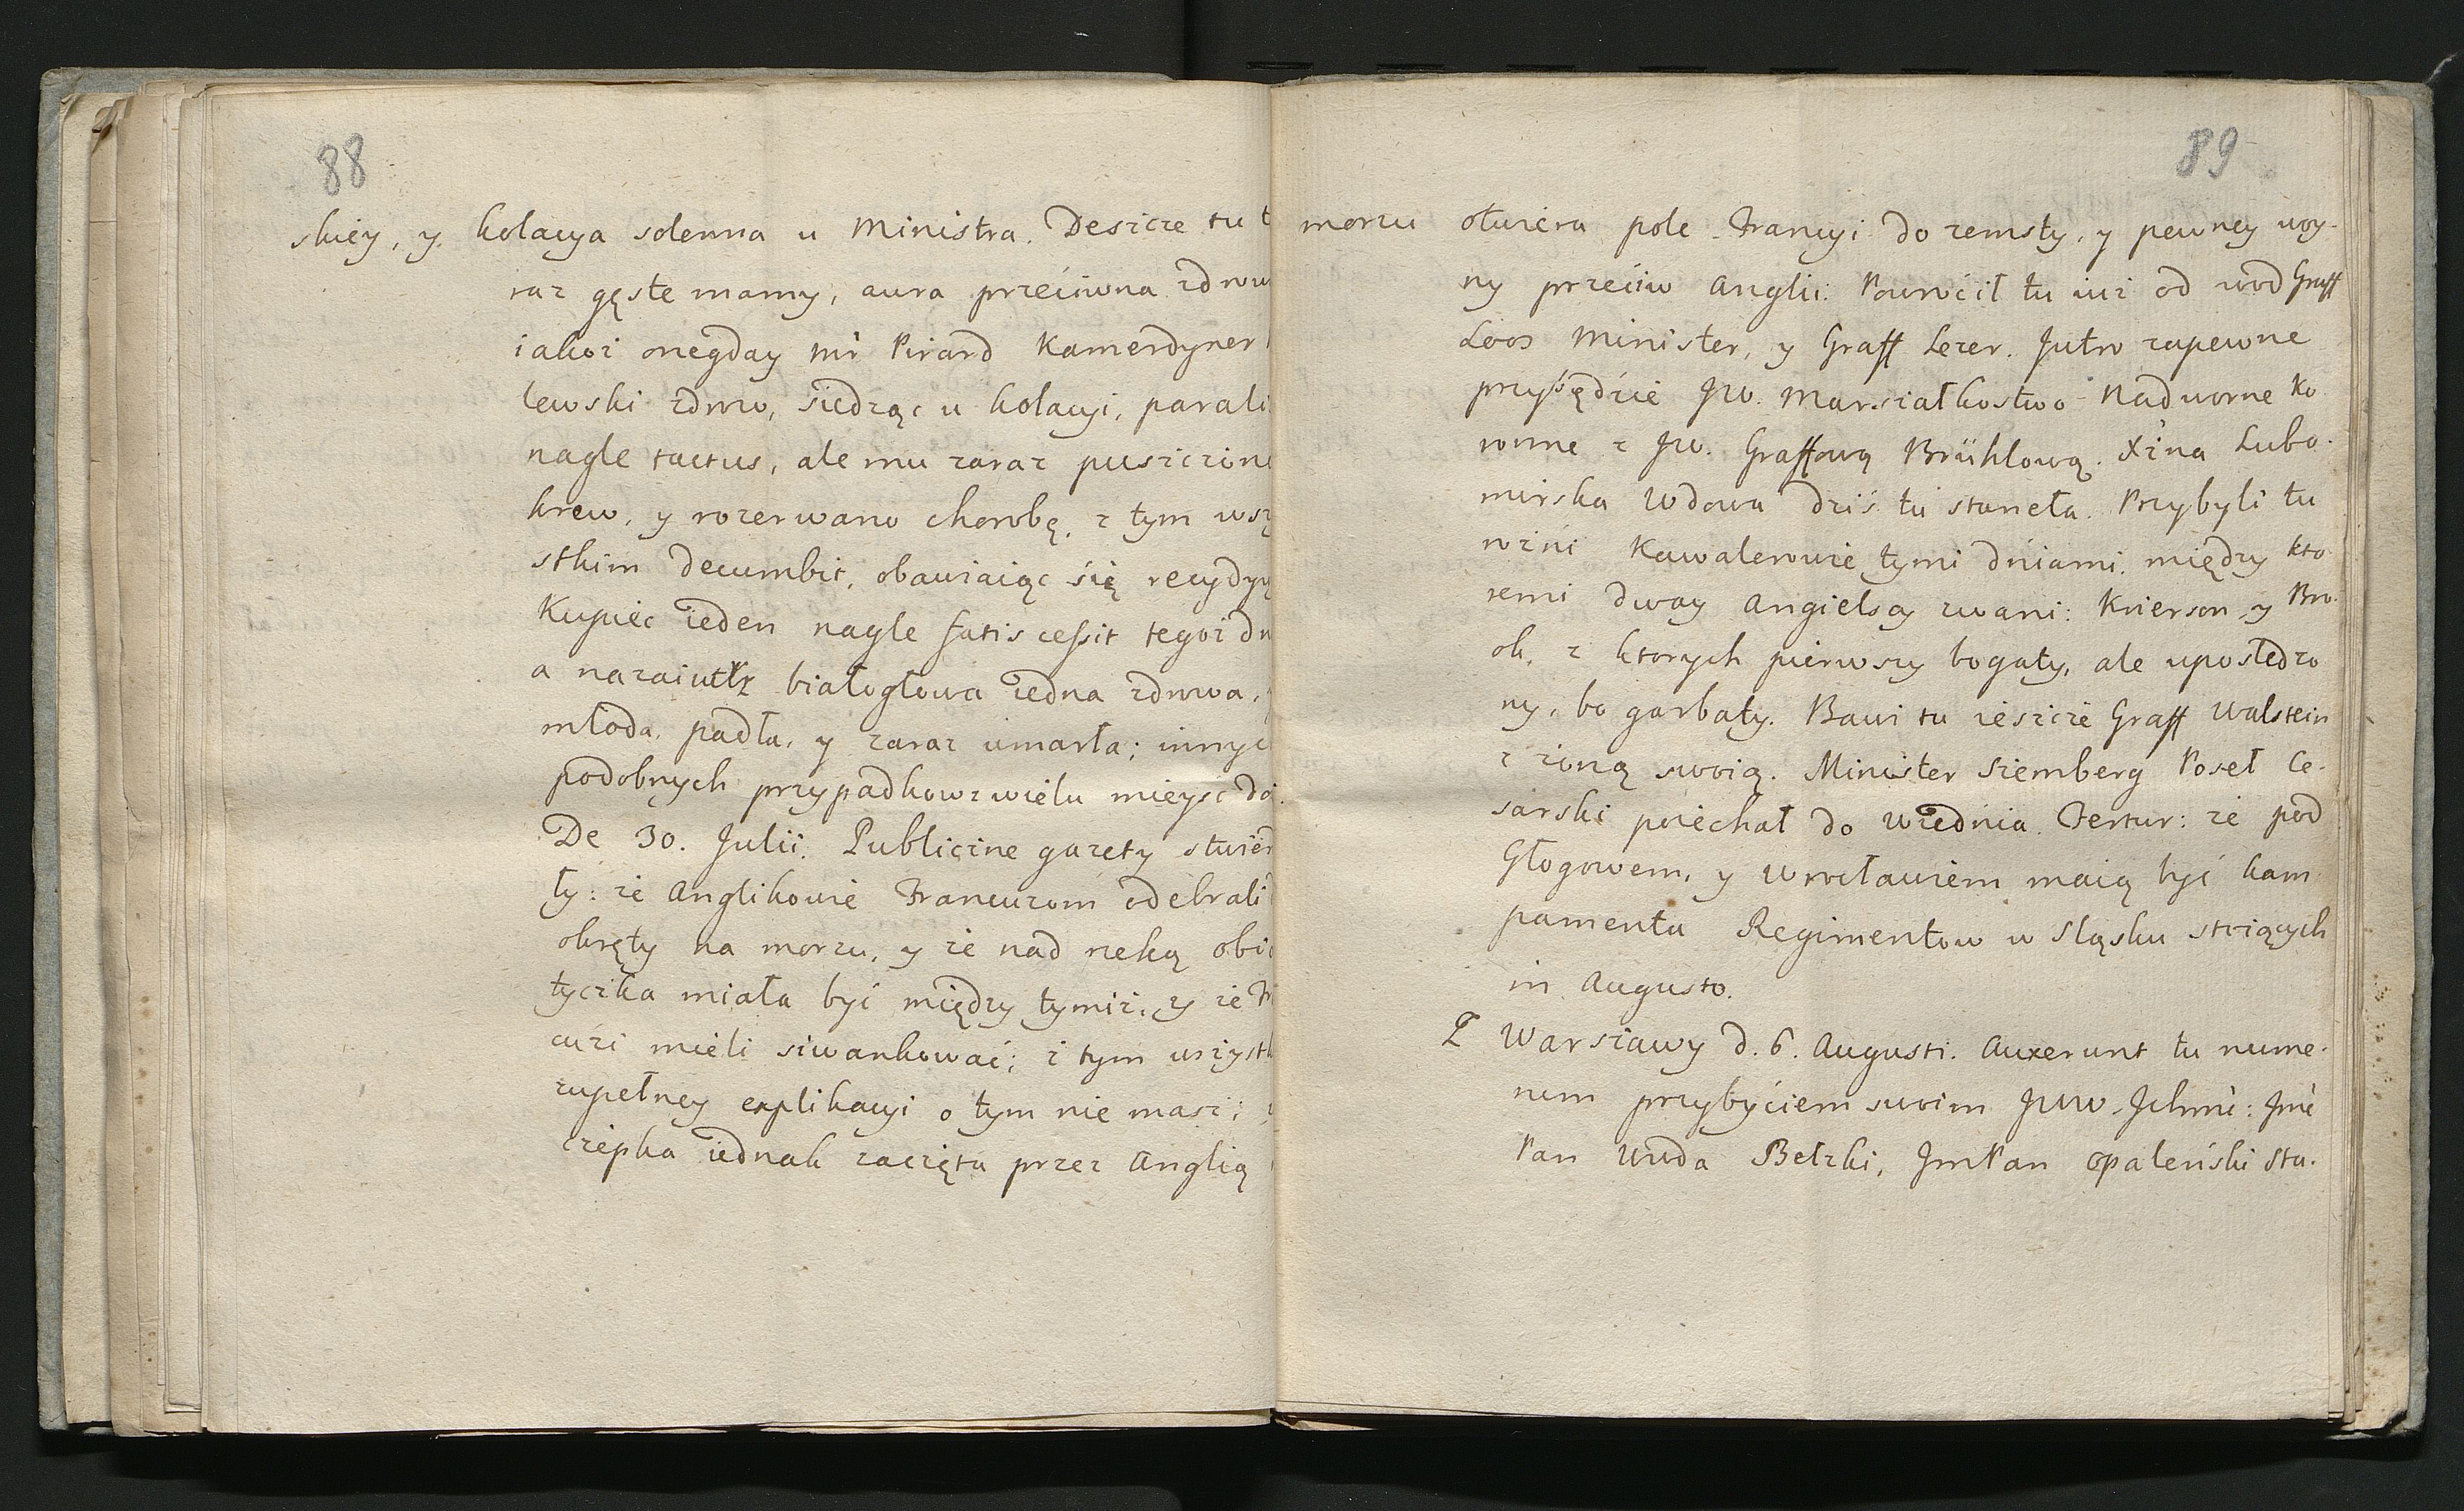 88
skiey, y kolacya solenna u Ministra. Deszcze tu t
raz gęste mamy, aura przeciwna zdrow
iakoż onegday Mr Pirard Kamerdyner
lewski zdrow, siedząc u kolacyi, parali
nagle tactus, ale mu zaraz puszczono
krew, y rozerwano chorobę, z tym wszy
stkim decumbit, obawiaiąc się recydyw
Kupiec ieden nagle fatis cessit tegoż dn
a nazaiutrz białogłowa iedna zdrowa,
młoda, padła, y zaraz umarła; innych
podobnych przypadkow z wielu mieysc do
De 30. Julii. Publiczne gazety stwierd
ły: że Anglikowie Francuzom odebrali
okręty na morzu, y że nad rzeką obio
tyczka miała być między tymiż, y że Fr
cuzi mieli szwankować; z tym wszystk
zupełney explikacyi o tym nie masz;
czepka iednak zaczęta przez Anglią
89
morzu otwiera pole Francyi do zemsty, y pewney woy-
ny przeciw Anglii. Powrócił tu iuż od wod Graff
Loos Minister, y Graff Lezer. Jutro zapewne
przybędzie JW. Marszałkostwo Nadworne Ko
ronne z JW. Graffową Brühlową. Xżna Lubo-
mirska Wdowa dziś tu staneła. Przybyli tu
rożni Kawalerowie tymi dniami, między kto-
remi dway Angielscy zwani: Knierson y Bro-
ok, z ktorych pierwszy bogaty, ale upośledzo
ny, bo garbaty. Bawi tu ieszcze Graff Walstein
z żoną swoią. Minister Sternberg Poseł Ce-
sarski poiechał do Wiednia. Fertur: że pod
Głogowem, y Wrocławiem maią być kam
pamenta Regimentow w Sląsku stoiących
in Augusto.
Z Warszawy d. 6. Augusti. Auxerunt tu nume-
rum przybyciem swoim JWW. Jchmć: Jmć
Pan Wwda Bełzki, JmPan Opaleński Sta-